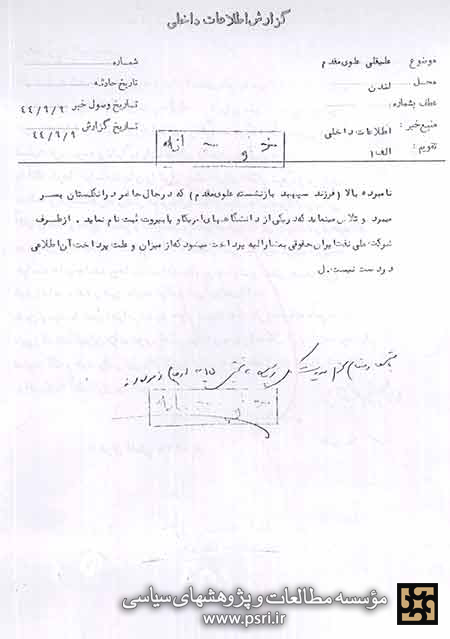 گزارش اطلاعات داخلی
موضوع: علینقی علوی مقدم شماره
محل: لندن تاریخ حادثه
عطف بشماره: تاریخ وصول خبر ۴۴/۹/۹
منبع خبر: اطلاعات داخلی تاریخ گزارش ۴۴/۹/۹
تقویم: الف ۱
نامبرده بالا (فرزند سپهبد بازنشسته علوی مقدم) که در حال حاضر در انگلستان بسر
میبرد و تلاش مینماید که در یکی از دانشگاههای امریکا و یا بیروت ثبت نام نماید . از طرف
شرکت ملی نفت ایران حقوقی بمشارالیه پرداخت میشود که از میزان و علت پرداخت آن اطلاعی
در دست نیست. ل
مؤسسه مطالعات و پژوهشهای سیاسی
www.psri.ir